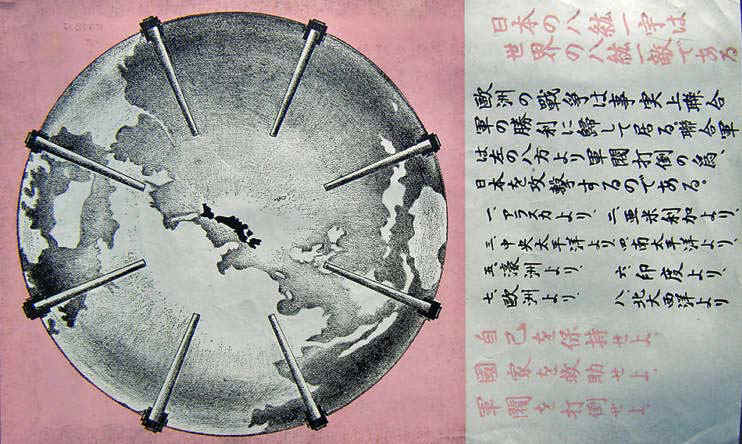 日本の八紘一宇は
世界の八紘一敵である
歐洲の戰爭は事実上聯合
軍の勝利に歸して居る聯合軍
は左の八方より軍閥打倒の為、
日本を攻撃するのである。
一、アラスカより、 二、亜米利加より、
三、中央太平洋より、四、南太平洋より、
五、濠洲より、 六、印度より、
七、歐洲より、 八、北大西洋より
自己を保持せよ、
國家を救助せよ、
軍閥を打倒せよ、